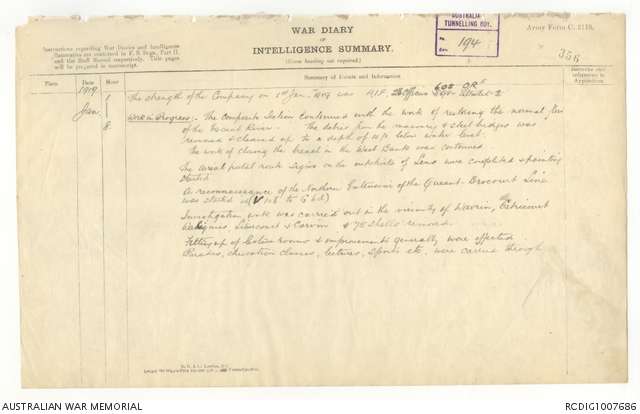 WAR DIARY
OF
INTELLIGENCE SUMMARY.
(Erase heading not required).
Instructions regarding War Diaries and Intelligence
Summaries are contained in F. S. Regs., Part II.
and the Staff Manual respectively. Title pages
will be prepared in manuscript.
AUSTRALIAN
TUNNELLING COY.
194
Army Form C. 2118.
356
Place Date Hour Summary of Events and Information Remarks and references to Appendices
1919
Jan. 1
The strength of the Company on 1st Jan. 1919 was AIF 605 O.R.
8
Work in Progress: The Composite Section continued with the work of restoring the normal flow
of the Escaut River. The debris from the masonry & steel bridges was
removed & cleared up to a depth of below water level.
The work of closing the breach in the West Bank was continued.
The aerial postal route signs on the outskirts of Lens were completed & painting
started.
A reconnaissance of the Northern Extension of the Queant-Drocourt Line
was started
Investigation work was carried out in the vicinity of Wavrin,
Libercourt & Carvin & 75 shells removed.
Fitting up of Estaminet rooms & improvements generally were effected
Parades, education classes, lectures, sports etc. were carried through
AUSTRALIAN WAR MEMORIAL
RCDIG1007686